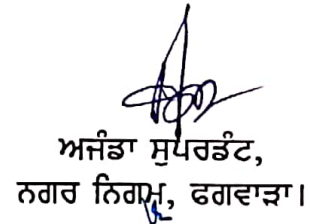 ਅਜੰਡਾ ਸੁਪਰਡੰਟ,
ਨਗਰ ਨਿਗਮ, ਫਗਵਾੜਾ।